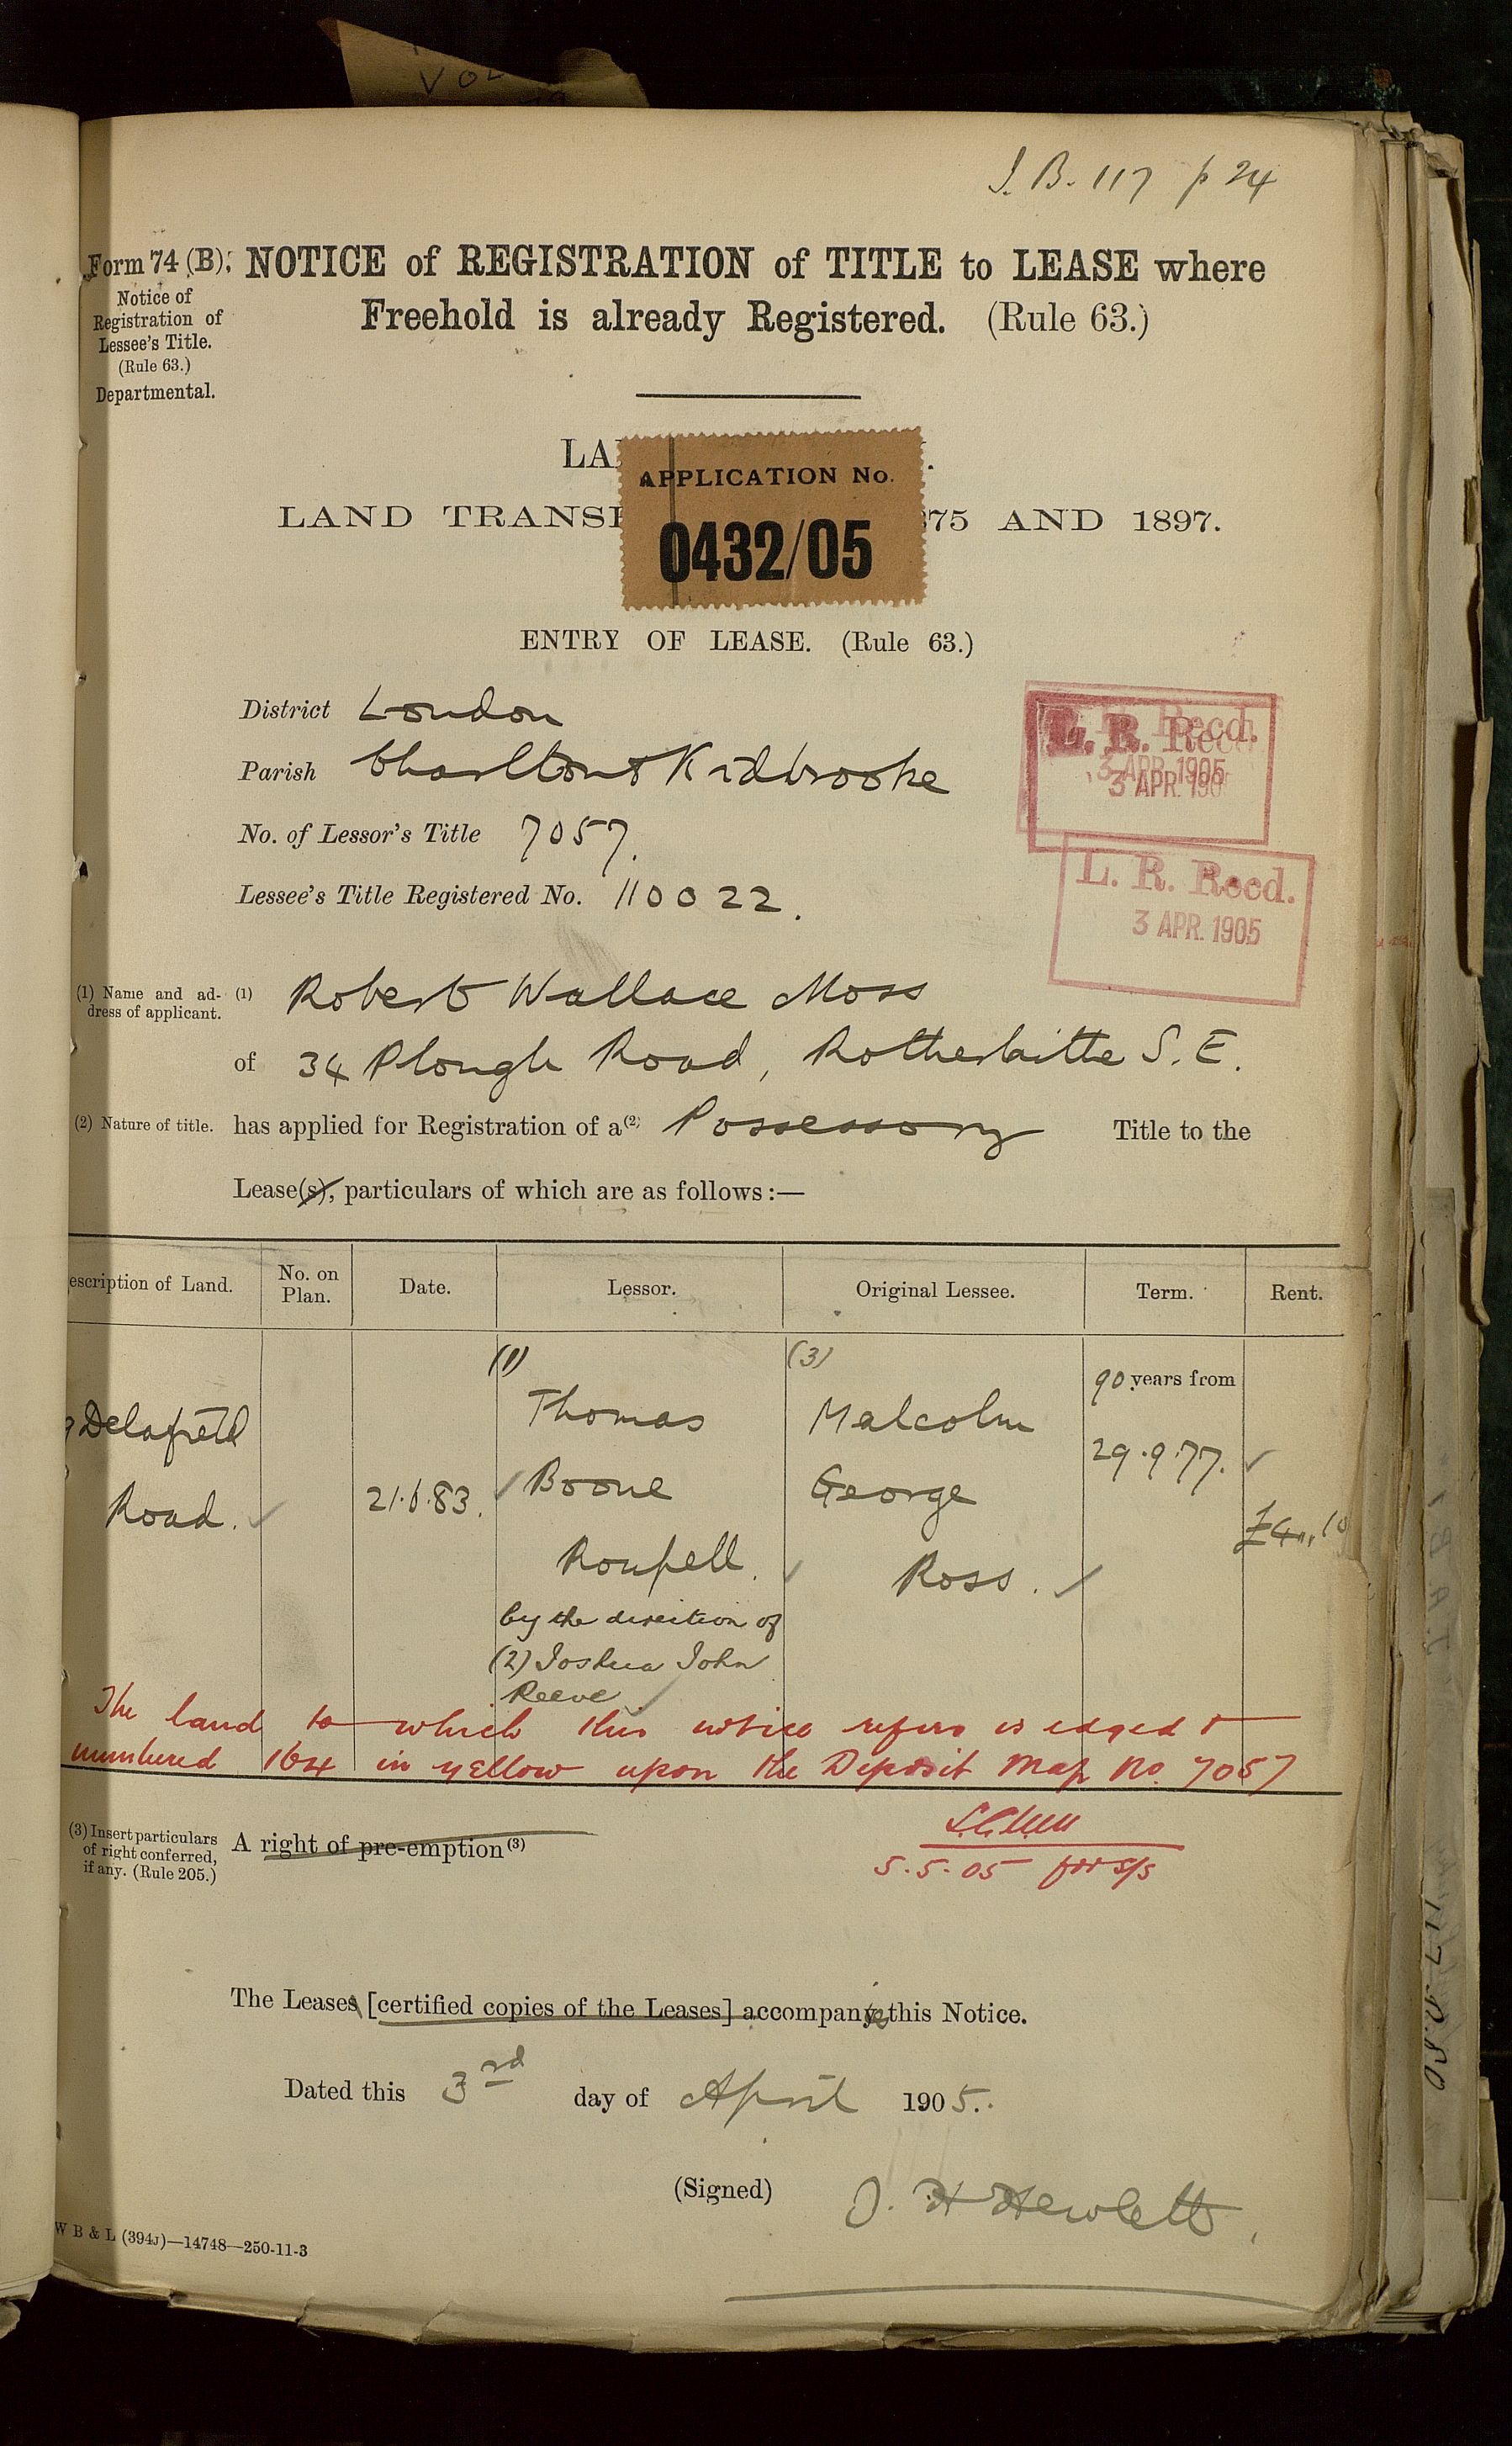 VOL
I. B. 117 p 24
Form 74 (B). NOTICE of REGISTRATION of TITLE to LEASE where
Freehold is already Registered. (Rule 63.)
Notice of
Registration of
Lessee's Title.
(Rule 63.)
Departmental.
LA
APPLICATION No.
LAND TRANSF 875 AND 1897.
0432/05
ENTRY OF LEASE. (Rule 63.)
District London
Parish Charlton & Kidbrooke
No. of Lessor's Title 7057.
Lessee's Title Registered No. 110022.
L. R. Recd.
3 APR. 1905
L. R. Recd.
3 APR. 1905
(1) Name and ad-
dress of applicant.
(1) Robert Wallace Moss
of 34 Plough Road, Rotherhithe S. E.
(2) Nature of title. has applied for Registration of a (2) Possessory Title to the
Lease(s), particulars of which are as follows :—
escription of Land. No. on Plan. Date. Lessor. Original Lessee. Term. Rent.
Delafield
Road.
21.6.83.
(1)
Thomas
Boone
Roupell.
by the direction of
(2) Joshua John
Reeve
(3)
Malcolm
George
Ross.
90 years from
29.9.77.
The land to which this notice refers is edged &
numbered 164 in yellow upon the Deposit Map No. 7057
5.5.05 for
(3) Insert particulars
of right conferred,
if any. (Rule 205.)
A right of pre-emption (3)
The Leases [certified copies of the Leases] accompany this Notice.
Dated this 3rd day of April 1905.
(Signed) J. H Hewlett.
W B & L (394J)—14748—250-11-3